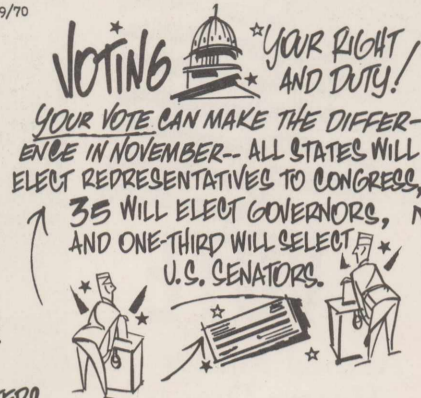 9/70
VOTING
YOUR RIGHT
AND DUTY!
YOUR VOTE CAN MAKE THE DIFFER-
ENCE IN NOVEMBER-- ALL STATES WILL
ELECT REPRESENTATIVES TO CONGRESS,
35 WILL ELECT GOVERNORS,
AND ONE-THIRD WILL SELECT
U.S. SENATORS.